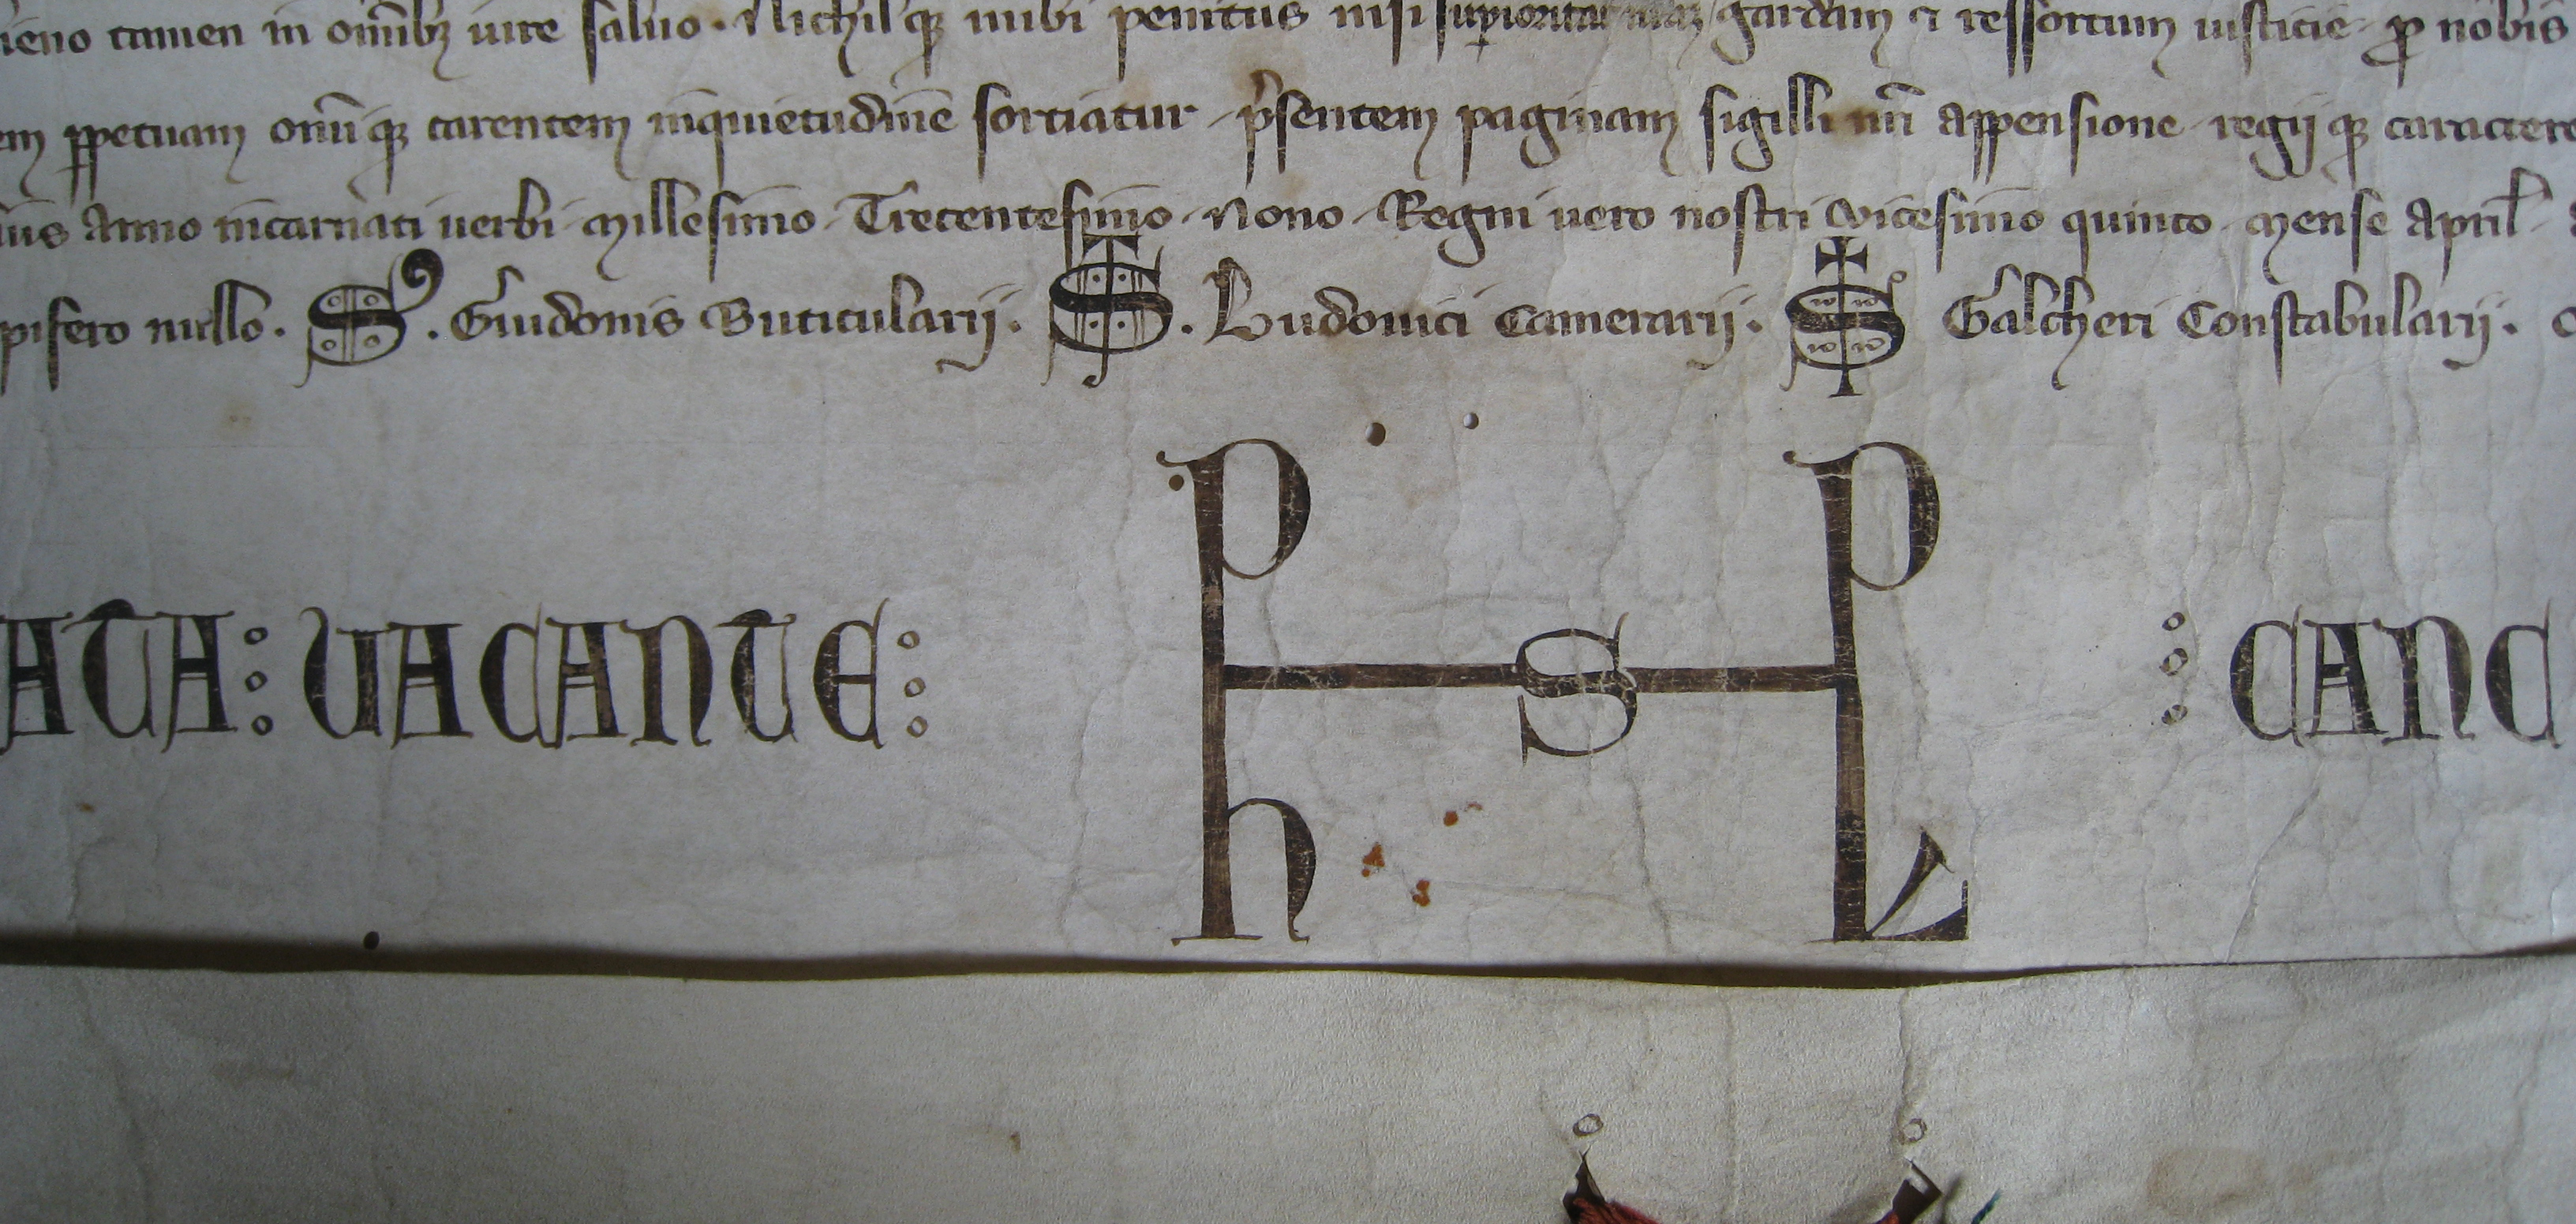 ieno tamen in omībꝫ iure saluo · Nichil qꝫ inibi penitus nisi gardam ⁊ ressortum iusticie ꝓ nobis
em ꝑpetuam omīqꝫ carentem inquietudine sortiatur · p̃sentem paginam sigilli nr̄i appensione regijqꝫ caractere
Anno incarnati uerbi Millesimo · Trecentesimo · Nono · Regni uero nostri vicesimo quinto · Mense April
pifero nullo · S · Guidonis Buticularij · S · Ludouici Camerarij · S Galcheri Constabularij ·
ATA : VACANTE : P h S P L : CANC